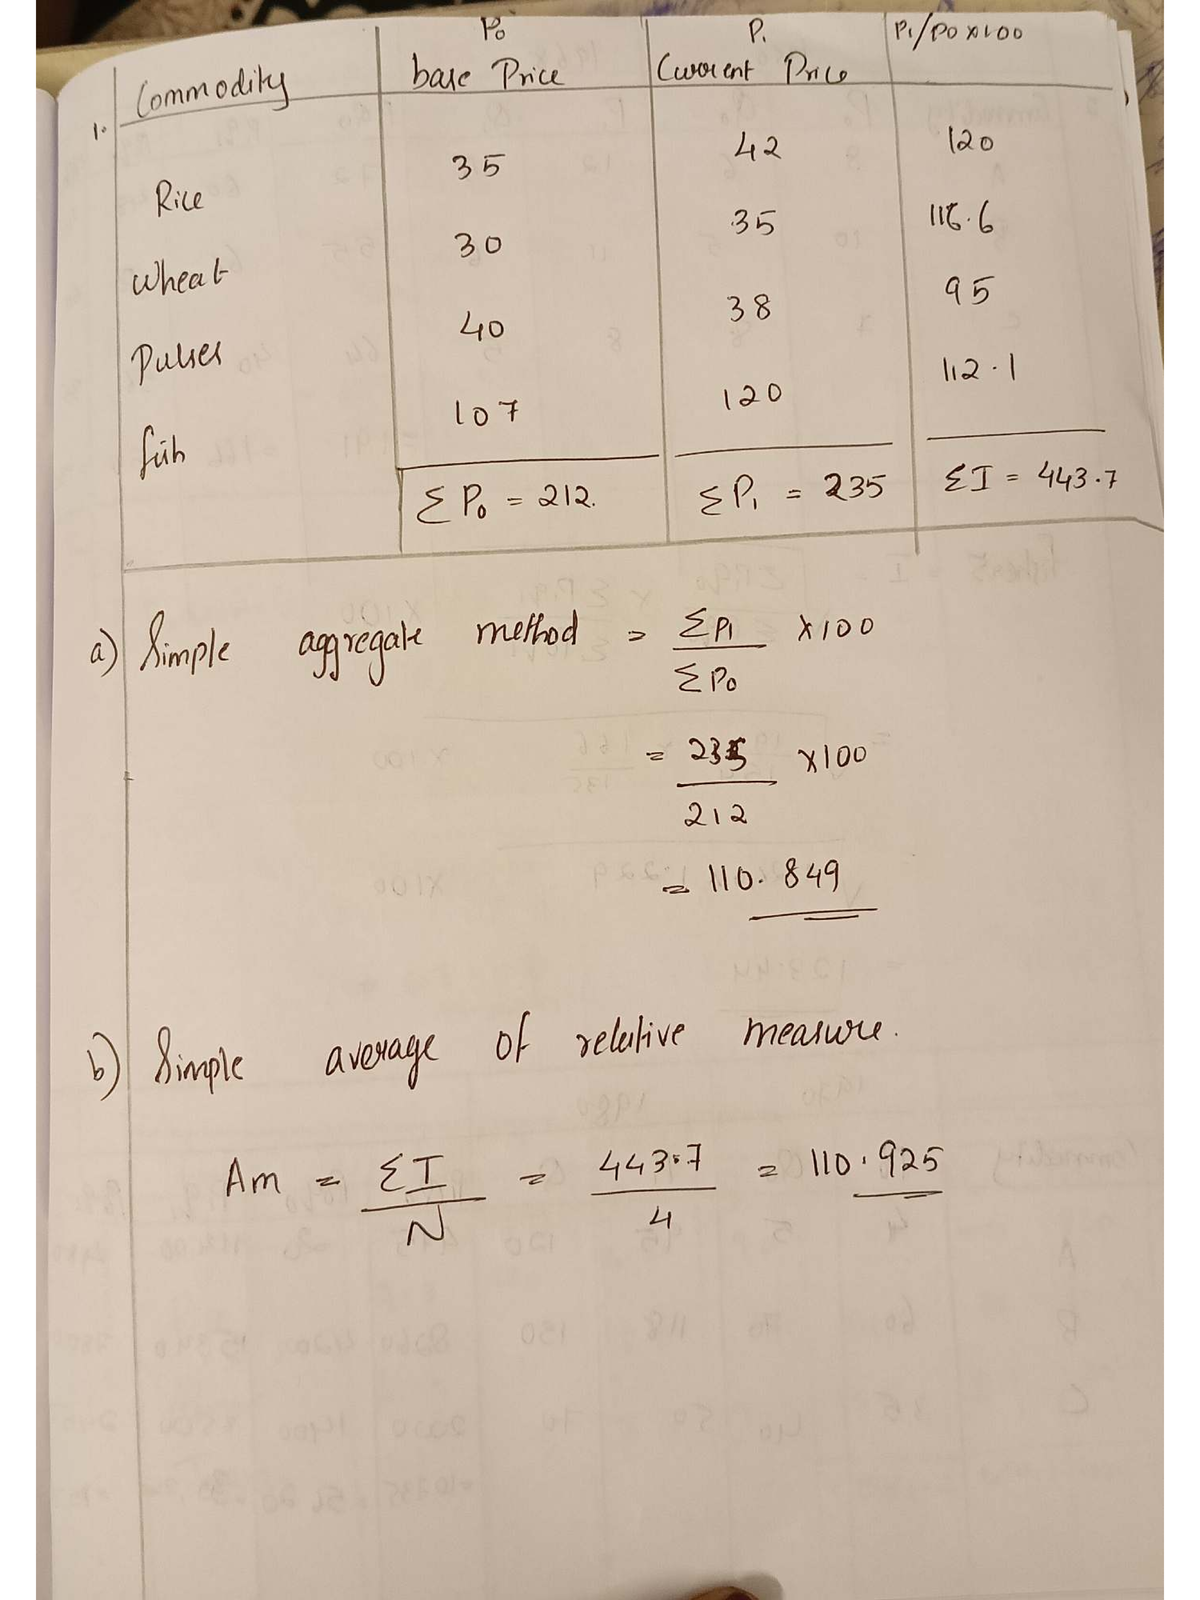 P₀ P₁ P₁/P0 x100
1. Commodity base Price Current Price
Rice 35 42 120
Wheat 30 35 116.6
Pulses 40 38 95
fish 107 120 112.1
ΣP₀ = 212. ΣP₁ = 235 ΣI = 443.7
a) Simple aggregate method = ΣP1 x100
ΣP0
= 235 x100
212
= 110.849
b) Simple average of relative measure.
Am = ΣI = 443.7 = 110.925
N 4